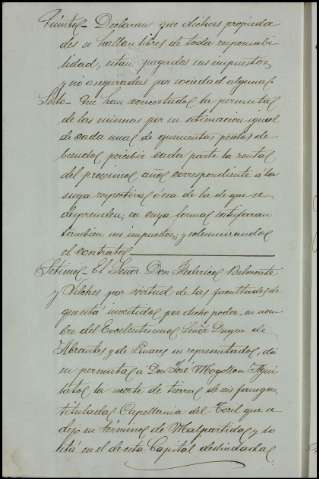 Quinto - Declaran que dichas propieda-
des se hallan libres de toda responsabi-
lidad, están pagados sus impuestos,
y no asegurados por sociedad alguna
Sesto - Que han concertado la permuta
de las mismas por su estimacion igual
de cada una de quinientas pesetas de-
biendo percibir cada parte la renta
del procsimo año correspondiente a la
suya respectiva ó sea de la de que se
desprenden, en cuya forma satisfaran
tambien sus impuestos, y solemnizando
el contrato
Septimo - El Señor Don Federico Belmonte
y Vilches por virtud de las facultades de
que está investido por dicho poder, en nom-
bre del Excelentisimo Señor Duque de
Abrantes y de Linares su representado, da
en permuta a Don José Mogollon
la suerte de tierra de seis fanegas
titulada Capellania del Toril que
dejo en término de Malpartida, y se
en el de esta Capital deslindada